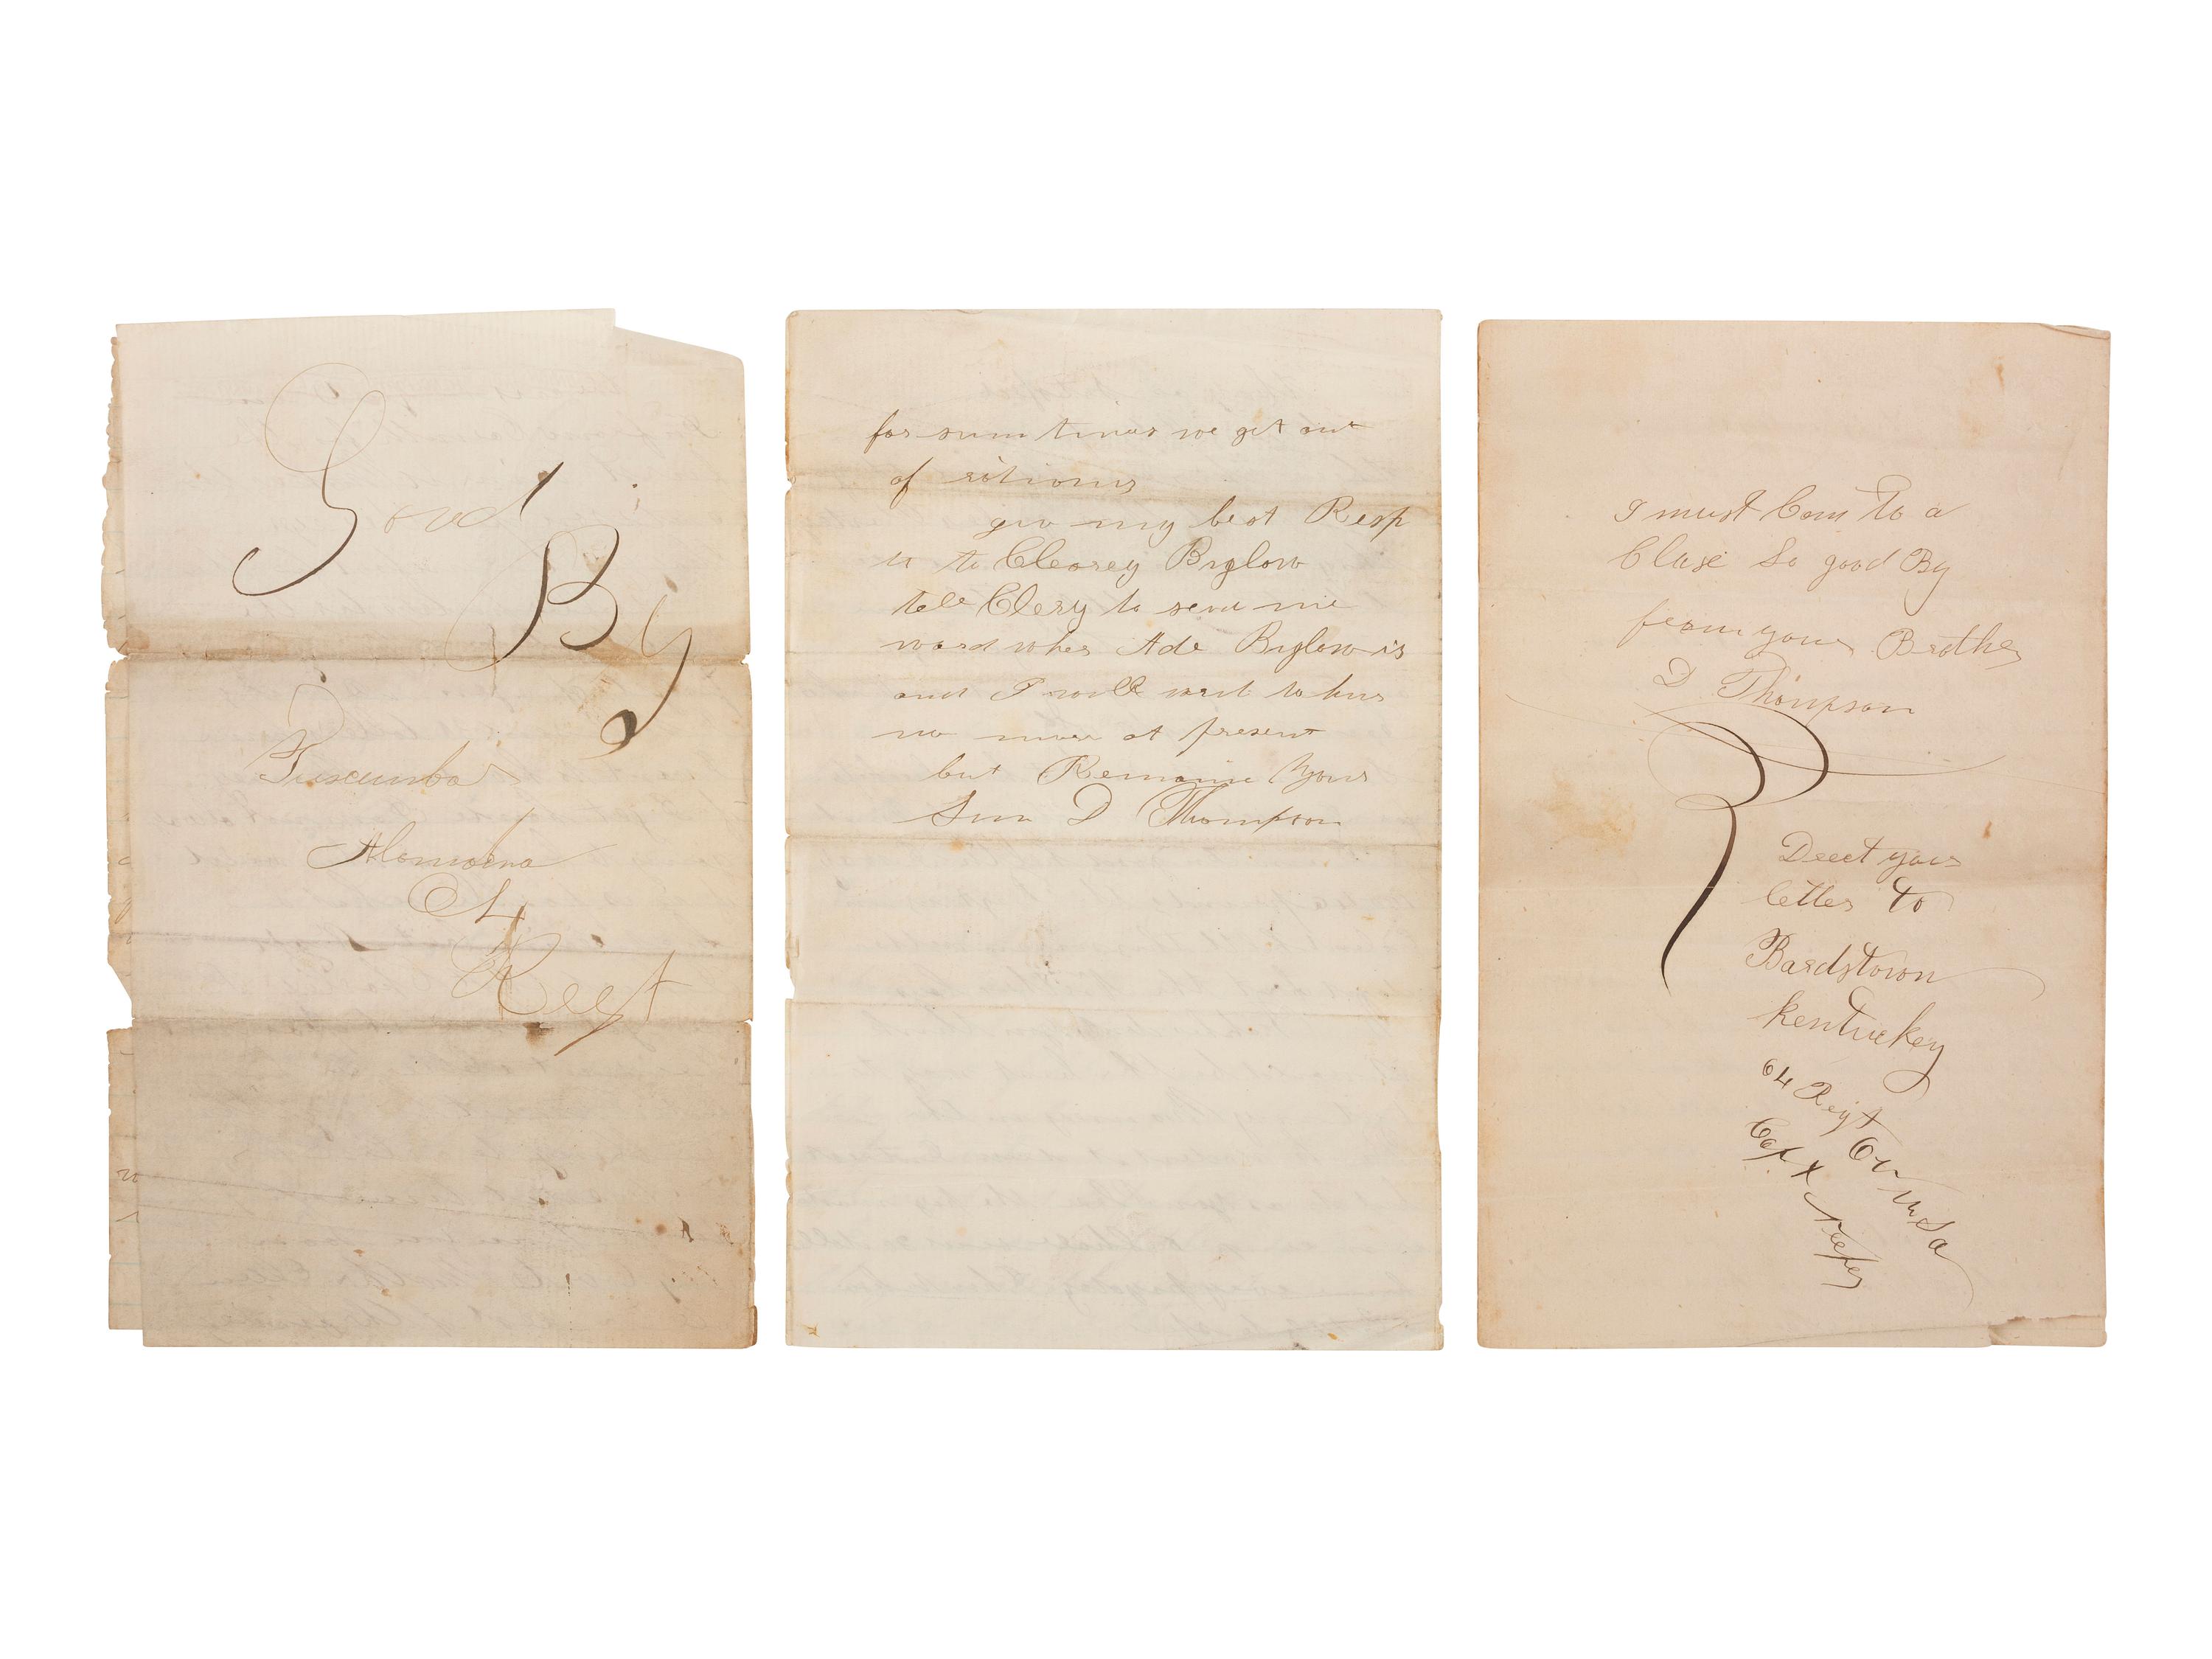 Good
By
Tuscumba
Alombma
64
Regt
for sum times we get out
of rations
giv my best Resp
ts to Clearey Byglow
tell Clery to send me
word wher Ade Byglow is
and I will writ to him
no more at present
but Remaine Yours
Sun D Thompson
I must Com to a
Close So good By
from your Brother
D Thompson
Deect your
letter to
Bardstown
Kentuckey
64 Regt O V U S a
Cap X